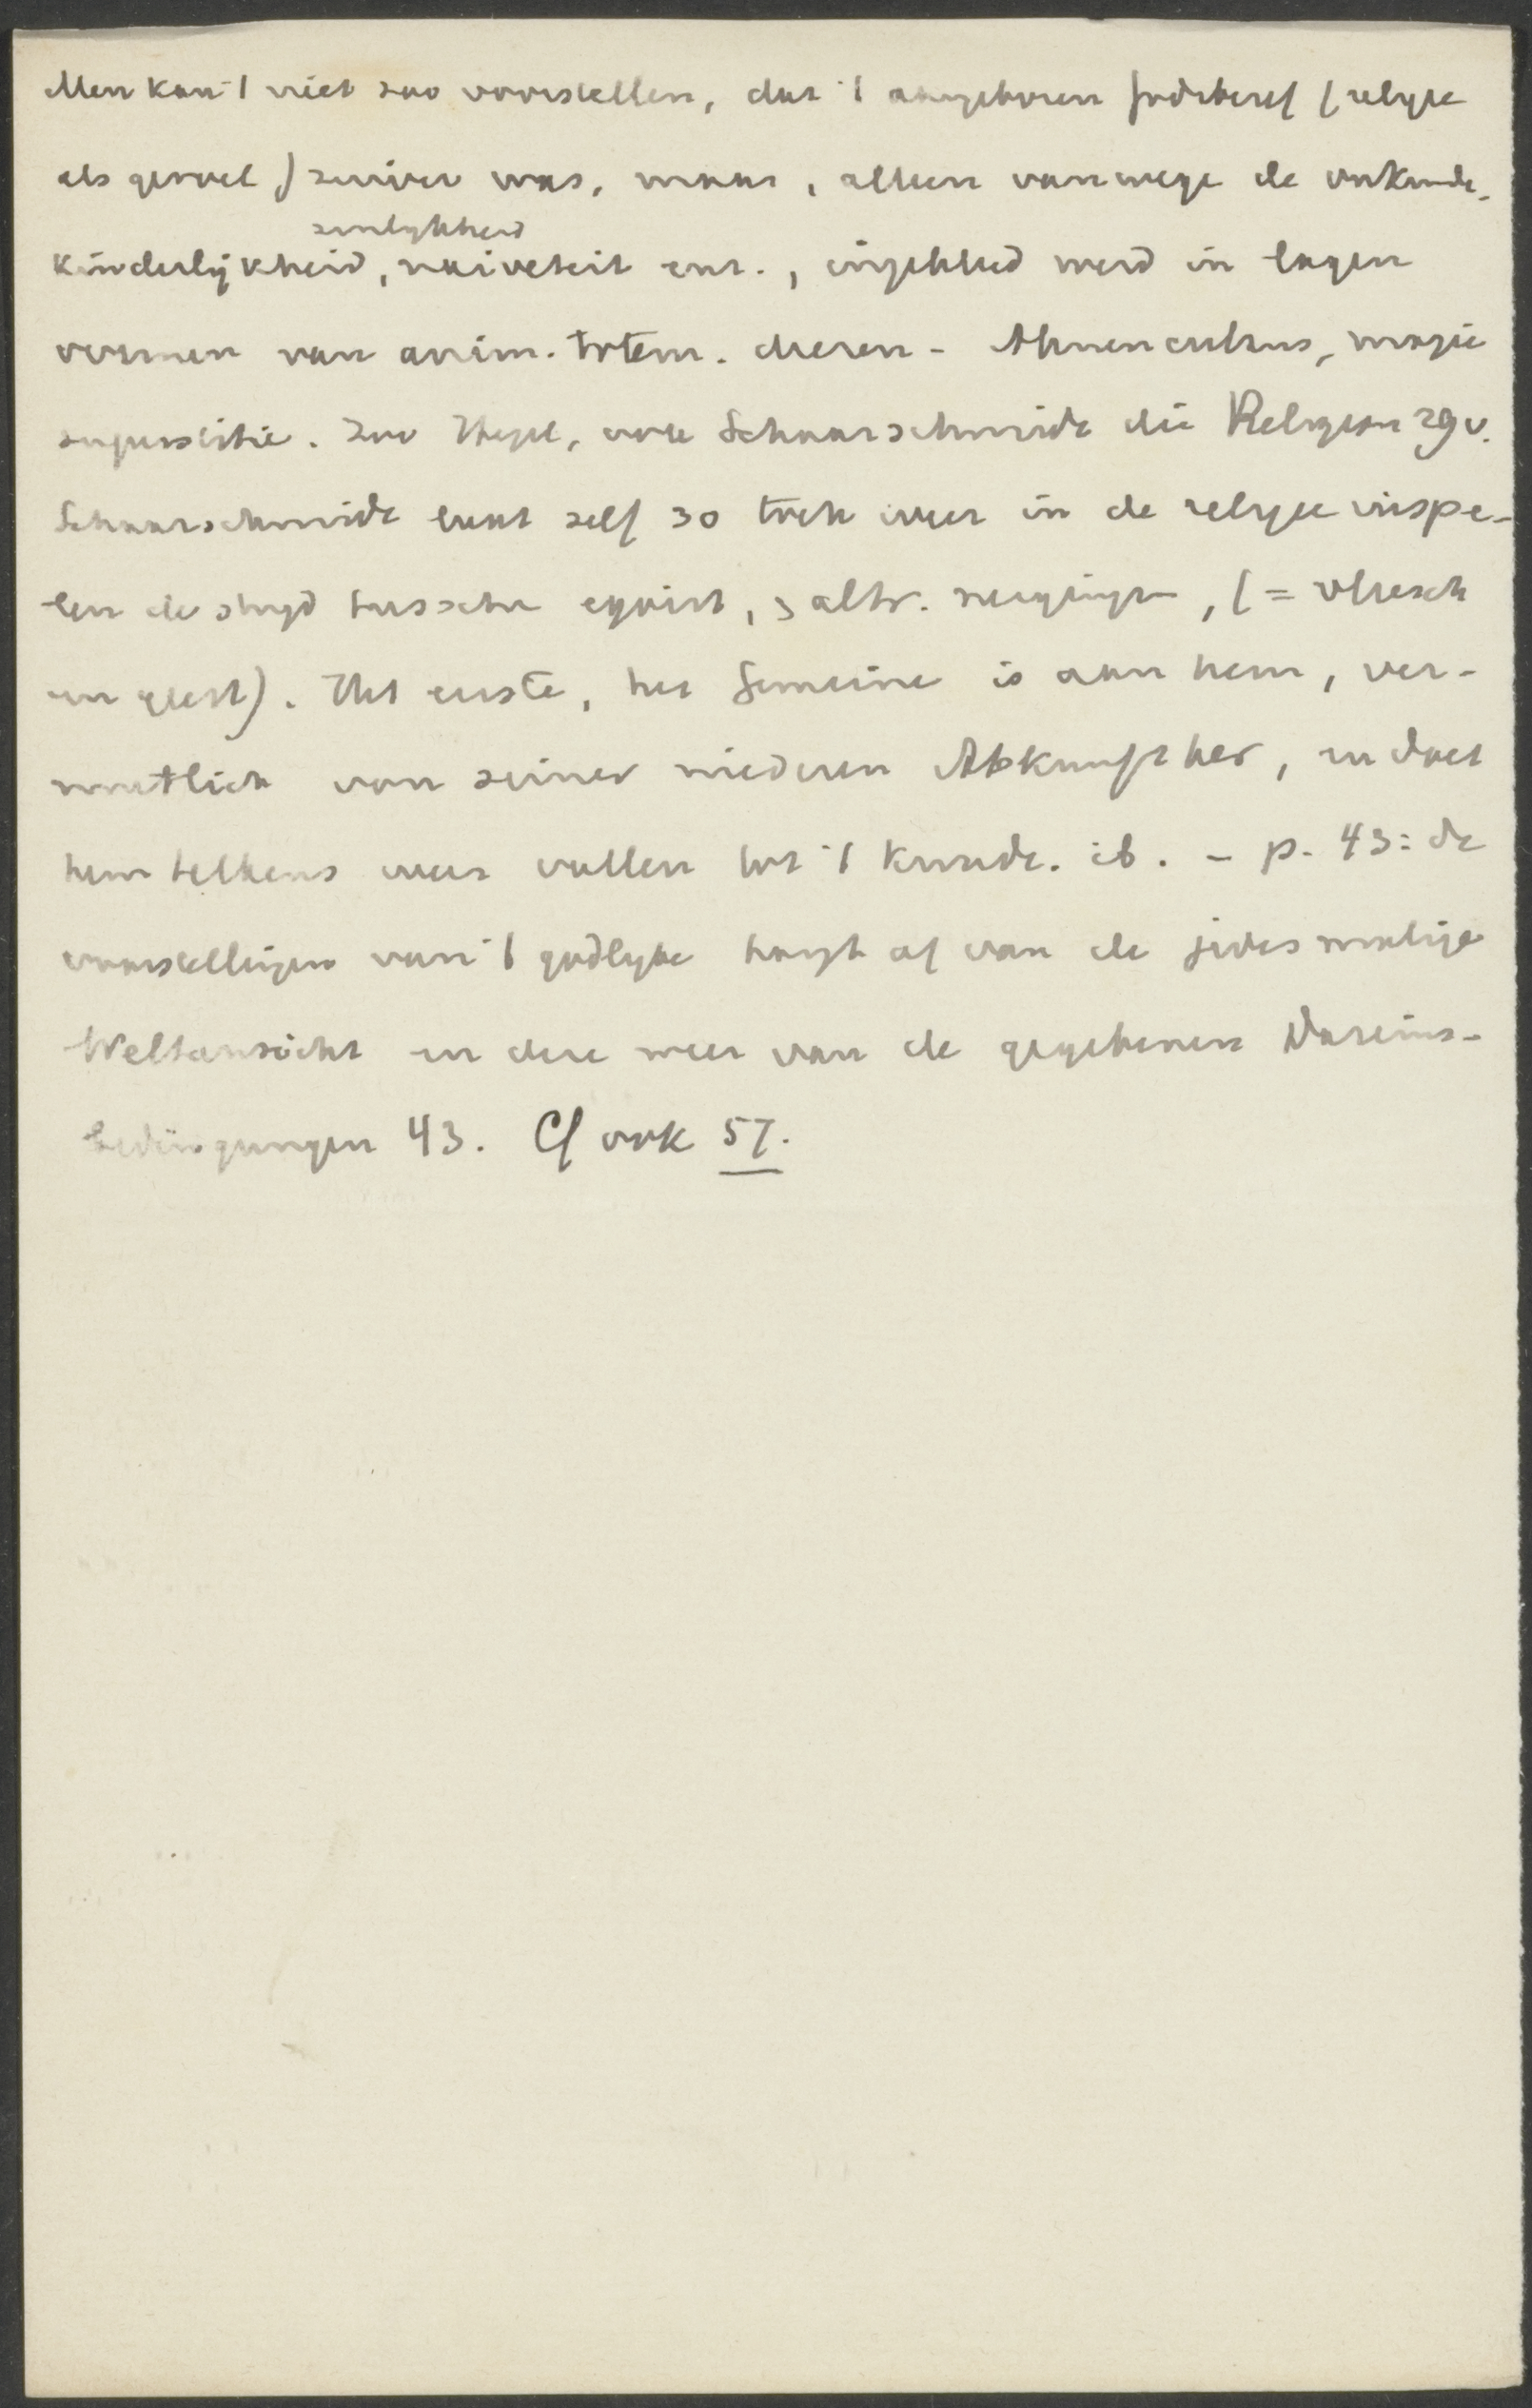 Men kan 't niet zoo voorstellen, dat 't aangeboren Godsbesef (religie
als gevoel) zuiver was, maar, alleen vanwege de onkunde,
zinlykheid
kinderlijkheid, naiveteit enz., ingekleed werd in lagen
vormen van anim. totem. dieren - Ahnencultus, magie
superstitie. Zoo Hegel, ook Schaarschmidt die Religion 29 v.
Schaarschmidt laat zelf 30 toch weer in de religie inspe-
len de stryd tusschen egoist, s altr. neigingen, (= vleesch
en geest). Het eerste, het Gemeine is aan hem, ver-
mutlich von seiner niederen Abkunft her, en doet
hem telkens weer vallen tot 't kwade. ib. - p. 43: de
voorstellingen van 't godlyke hangt af van de jedesmalige
Weltansicht en deze weer van de gegebenen Daseins-
bedingungen 43. Cf ook 57.